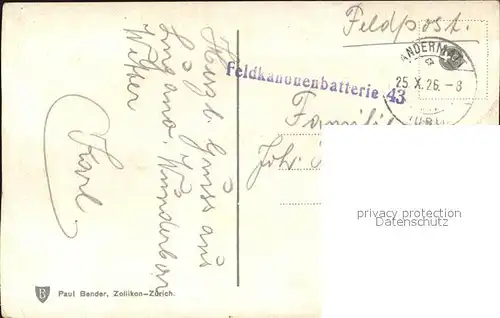 Feldpost.
ANDERMATT
25. X. 26. – 8
(URI)
Feldkanonenbatterie 43
Familie
Joh.
Gruss aus
Lugano. Wunderbar
Wetter
Karl.
privacy protection
Datenschutz
B
Paul Bender, Zollikon–Zürich.